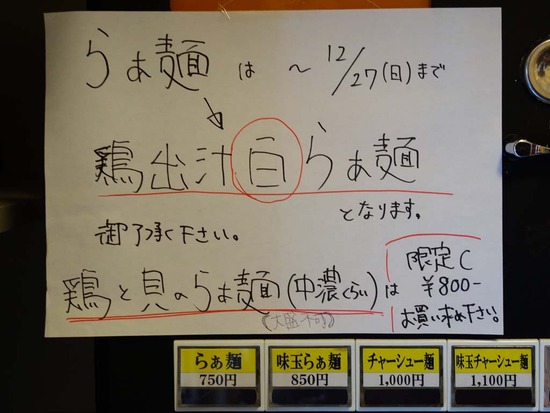 らぁ麺 は ～ 12/27(日)まで
鶏出汁白らぁ麺
となります。
御了承下さい。
鶏と貝のらぁ麺(中濃くらい)は
(大盛不可)
限定C
¥800-
お買い求め下さい。
らぁ麺
750円
味玉らぁ麺
850円
チャーシュー麺
1,000円
味玉チャーシュー麺
1,100円